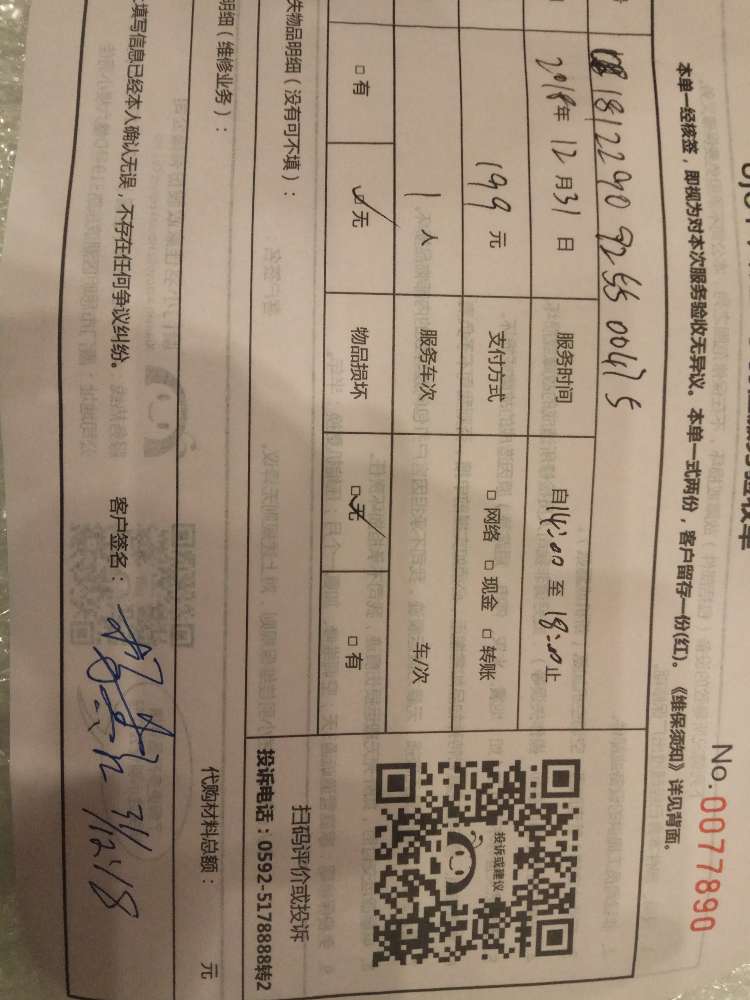 No. 0077890
本单一经核签，即视为对本次服务验收无异议。本单一式两份，客户留存一份(红)。《维保须知》详见背面。
2018年 12月31日
服务时间
自14:00至18:00止
199元
支付方式
□ 网络 □ 现金 □ 转账
1 人
服务车次
车/次
□ 有
☑ 无
物品损坏
☑ 无
□ 有
投诉或建议
扫码评价或投诉
投诉电话：0592-5178888转2
失物品明细（没有可不填）：
明细（维修业务）：
代购材料总额： 元
填写信息已经本人确认无误，不存在任何争议纠纷。
客户签名：
31/12/18